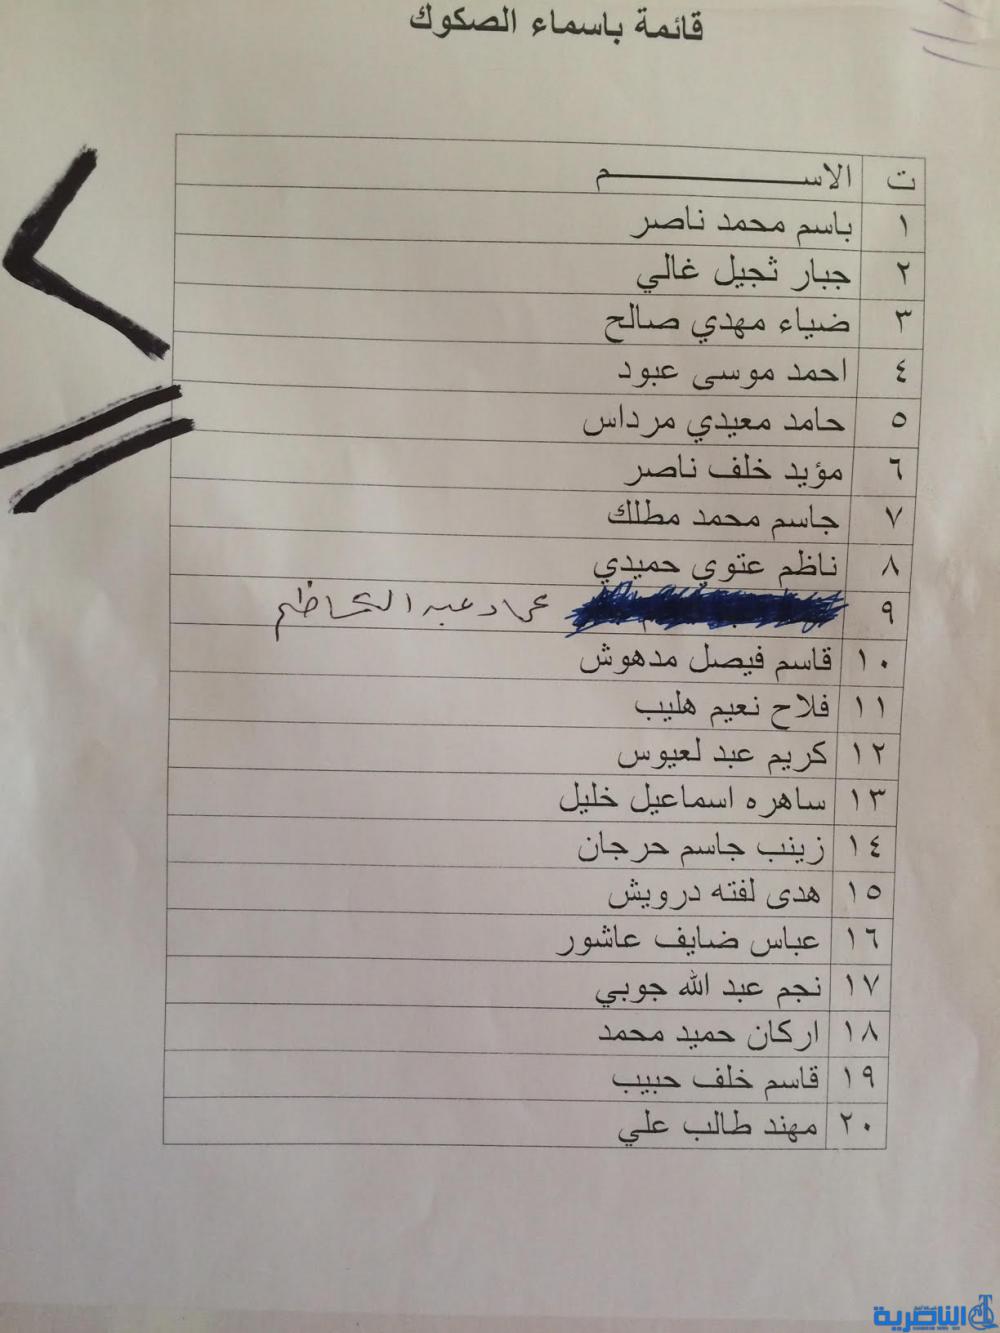 قائمة باسماء الصكوك
ت الاســـــــــــــــــم
١ باسم محمد ناصر
٢ جبار ثجيل غالي
٣ ضياء مهدي صالح
٤ احمد موسى عبود
٥ حامد معيدي مرداس
٦ مؤيد خلف ناصر
٧ جاسم محمد مطلك
٨ ناظم عتوي حميدي
٩ عماد عبد الكاظم
١٠ قاسم فيصل مدهوش
١١ فلاح نعيم هليب
١٢ كريم عبد لعيوس
١٣ ساهره اسماعيل خليل
١٤ زينب جاسم حرجان
١٥ هدى لفته درويش
١٦ عباس ضايف عاشور
١٧ نجم عبد الله جوبي
١٨ اركان حميد محمد
١٩ قاسم خلف حبيب
٢٠ مهند طالب علي
الناصرية